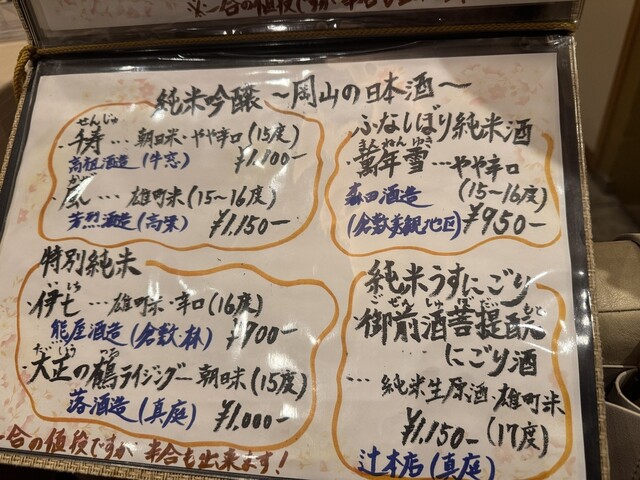 ※一合の値段ですが半合も出来
純米吟醸 〜岡山の日本酒〜
せんじゅ
・千寿…朝日米・やや辛口(15度)
高祖酒造(牛窓) ¥1.100-
・嵐…雄町米(15〜16度)
芳烈酒造(高梁) ¥1.150-
ふなしぼり純米酒
まんねんゆき
・萬年雪…やや辛口
森田酒造 (15〜16度)
(倉敷美観地区) ¥950-
特別純米
いしち
・伊七…雄町米・辛口(16度)
熊屋酒造(倉敷林) ¥700-
たいしょう つる
・大正の鶴ライジング…朝日米(15度)
落酒造(真庭) ¥1.000-
純米うすにごり
ごぜんしゅ ぼだいもと
・御前酒菩提酛
にごり酒
…純米生原酒・雄町米
¥1.150-(17度)
辻本店(真庭)
一合の値段ですが半合も出来ます!